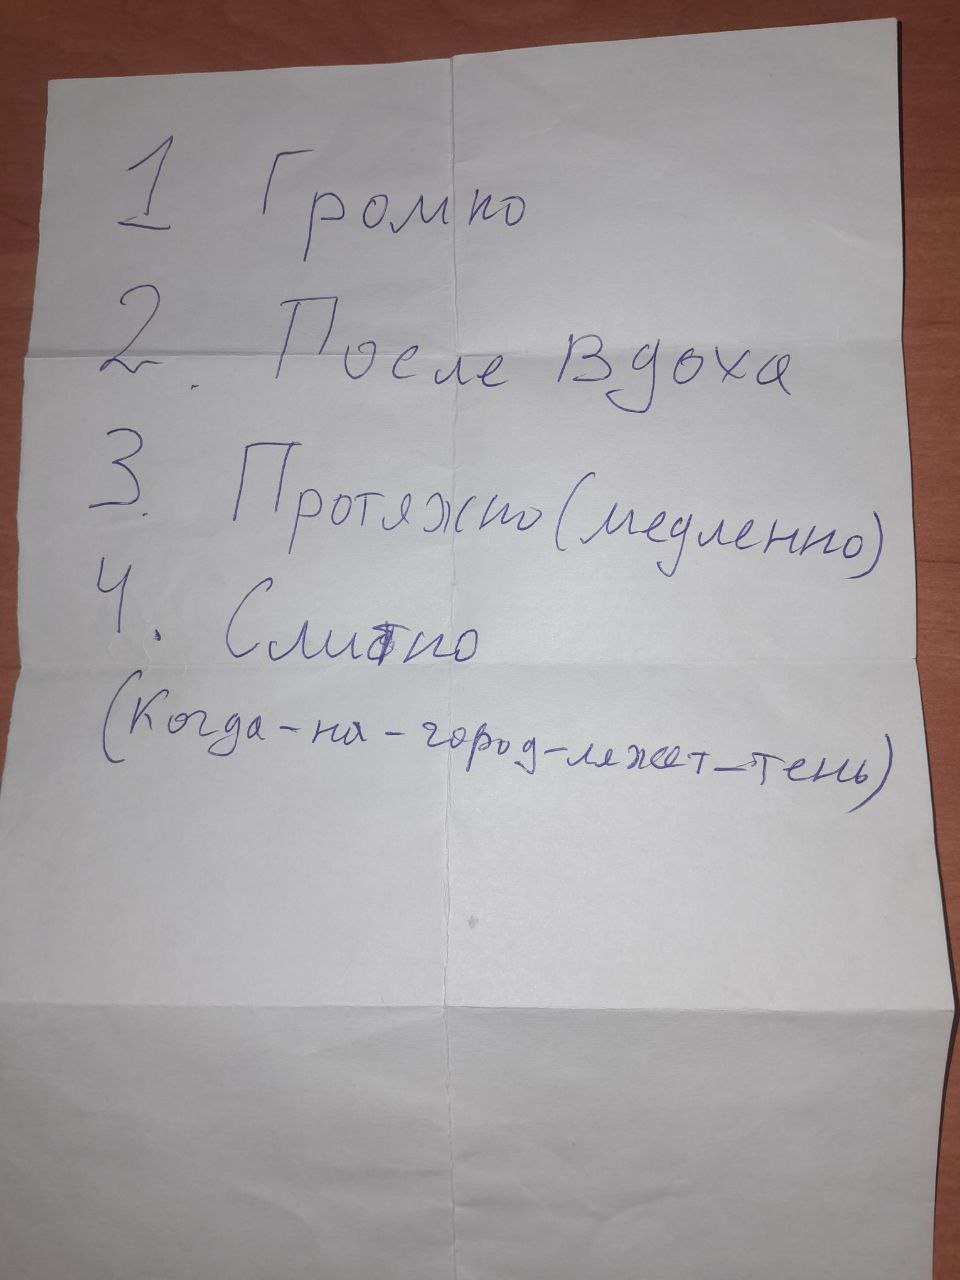 1 Громко
2. После Вдоха
3. Протяжно (медленно)
4. Слитно
(Когда-на-город-ляжет-тень)